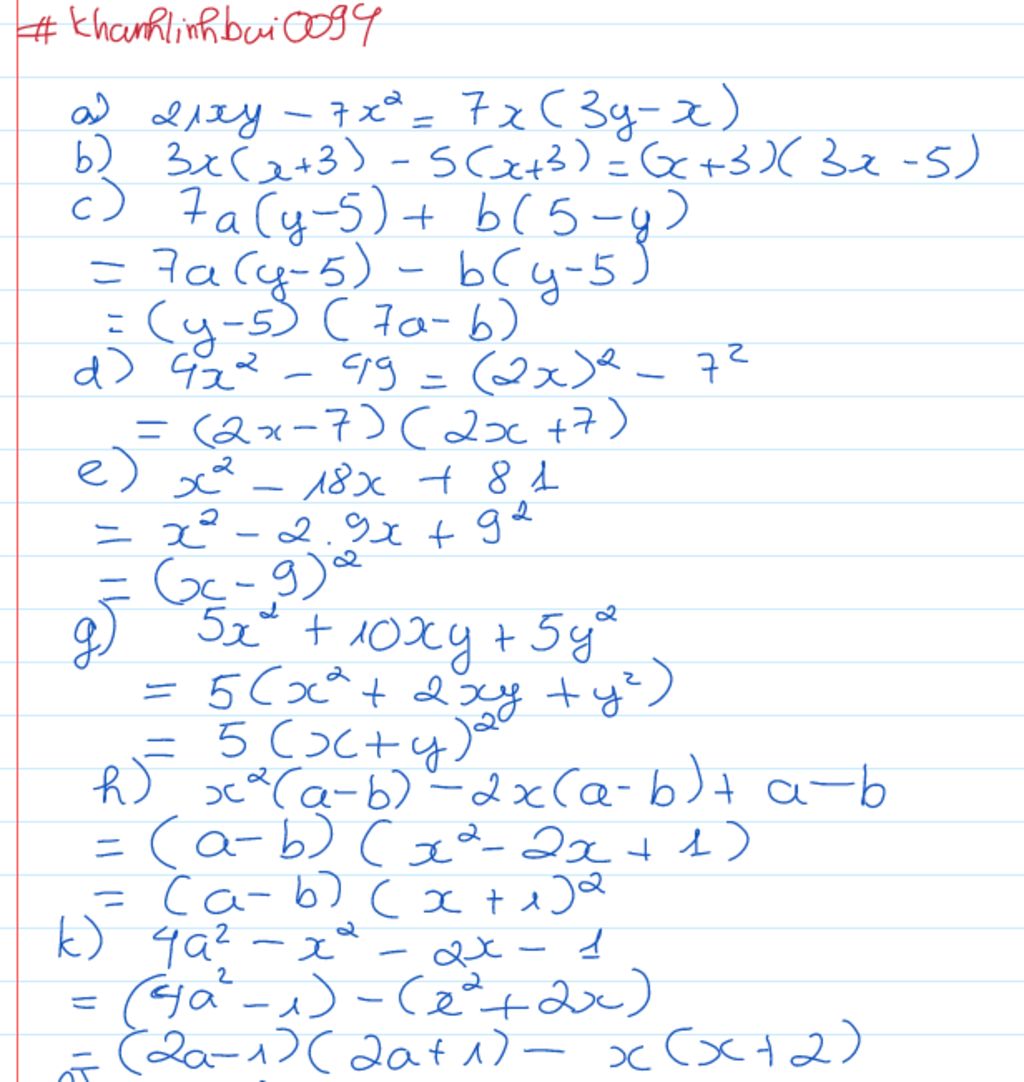 # khanhlinhbui0094
a) 21xy - 7x² = 7x(3y-x)
b) 3x(x+3) - 5(x+3) = (x+3)(3x-5)
c) 7a(y-5) + b(5-y)
= 7a(y-5) - b(y-5)
= (y-5)(7a-b)
d) 4x² - 49 = (2x)² - 7²
= (2x-7)(2x+7)
e) x² - 18x + 81
= x² - 2.9x + 9²
= (x-9)²
g) 5x² + 10xy + 5y²
= 5(x² + 2xy + y²)
= 5(x+y)²
h) x²(a-b) - 2x(a-b) + a-b
= (a-b)(x² - 2x + 1)
= (a-b)(x+1)²
k) 4a² - x² - 2x - 1
= (4a² - 1) - (x² + 2x)
= (2a-1)(2a+1) - x(x+2)